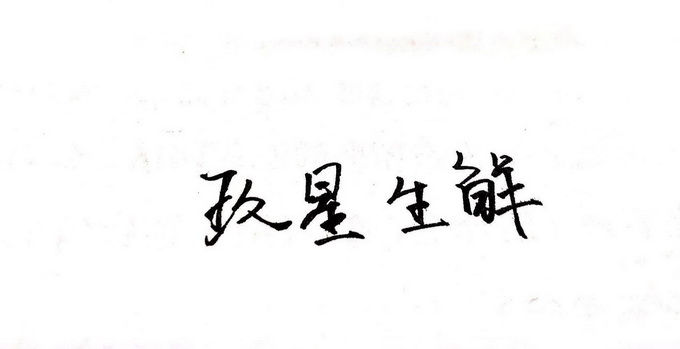 玖星生鲜